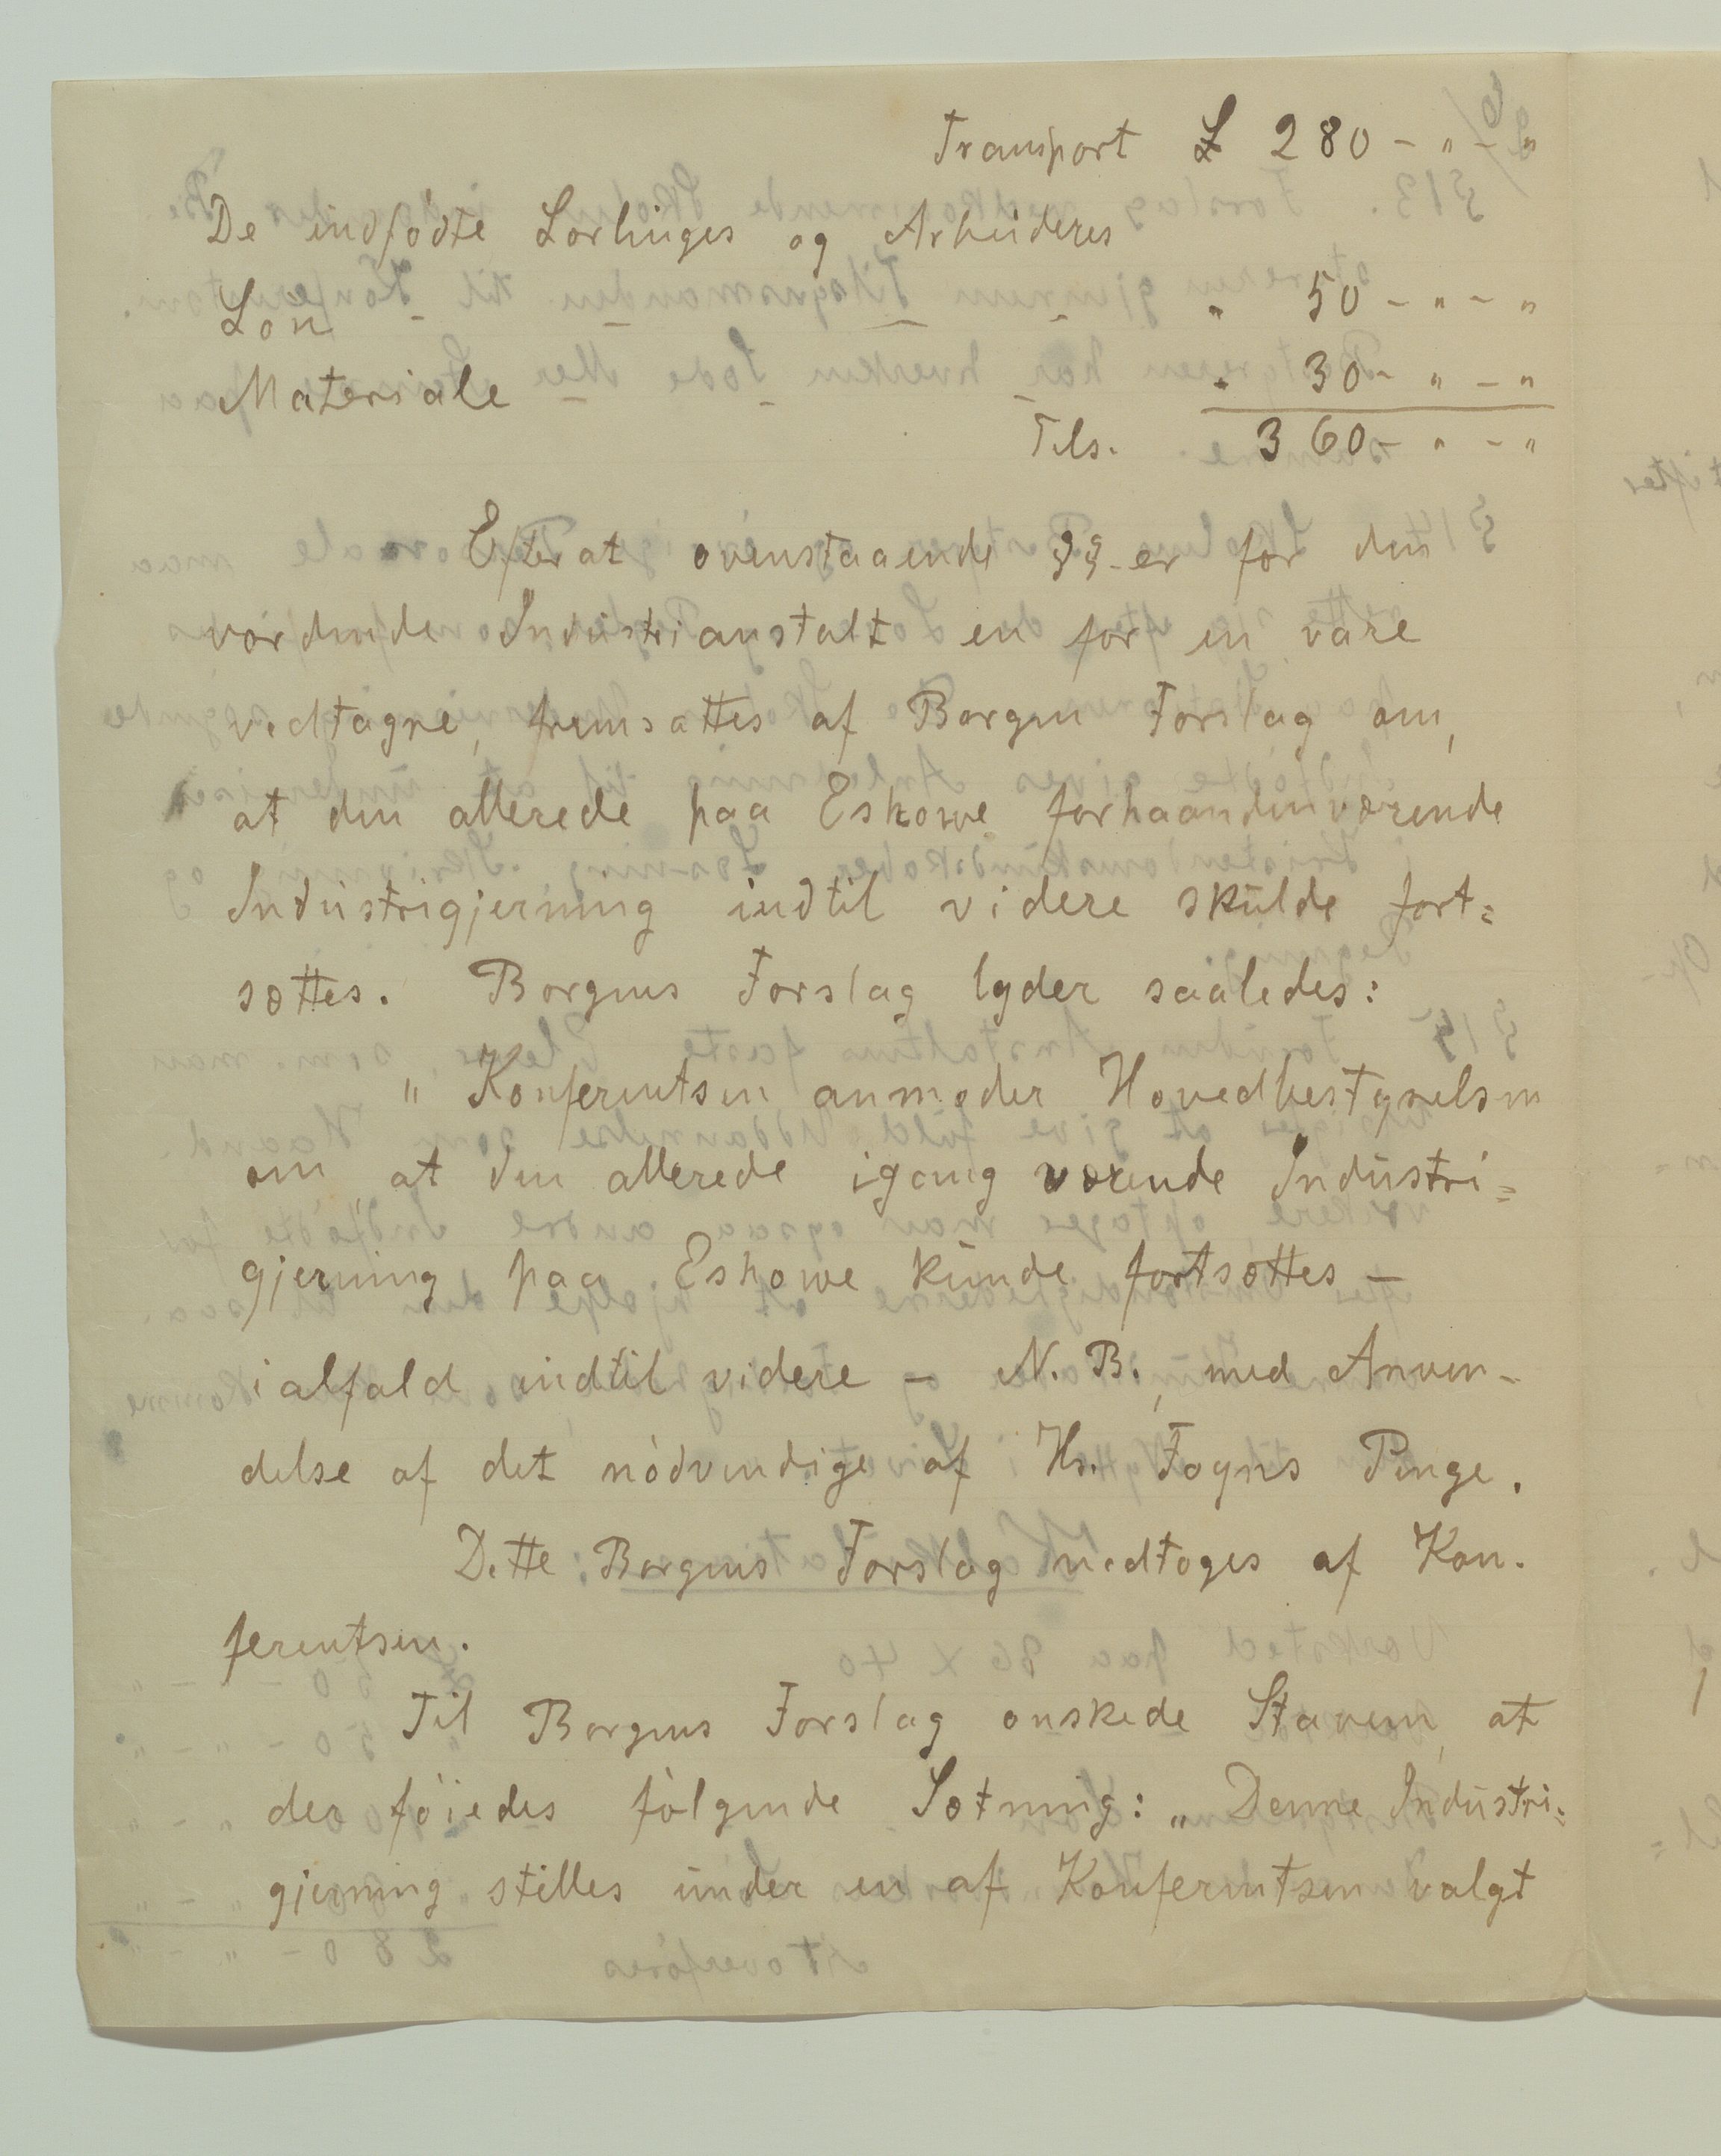 Transport £ 280 - " - "
De indfødte Lærlinges og Arbeideres
Løn - - - - " 50 - " - "
Materiale - - - " 30 - " - "
Tils. 360 - " - "
Efterat ovenstaaende §§-er for den
vordende Industrianstalt en for en vare
vedtagne, fremsattes af Borgen Forslag om,
at den allerede paa Eshowe forhaandenværende
Industrigjerning indtil videre skulde fort=
sættes. Borgens Forslag lyder saaledes:
" Konferentsen anmoder Hovedbestyrelsen
om, at den allerede igang værende Industri=
gjerning paa Eshowe kunde fortsættes -
ialfald indtil videre - N. B., med Anven-
delse af det nødvendige af Hr. Fogns Penge.
Dette Borgens Forslag vedtoges af Kon-
ferentsen.
Til Borgens Forslag ønskede Stavem, at
der føiedes følgende Sætning: „Denne Industri=
gjerning stilles under en af Konferentsen valgt